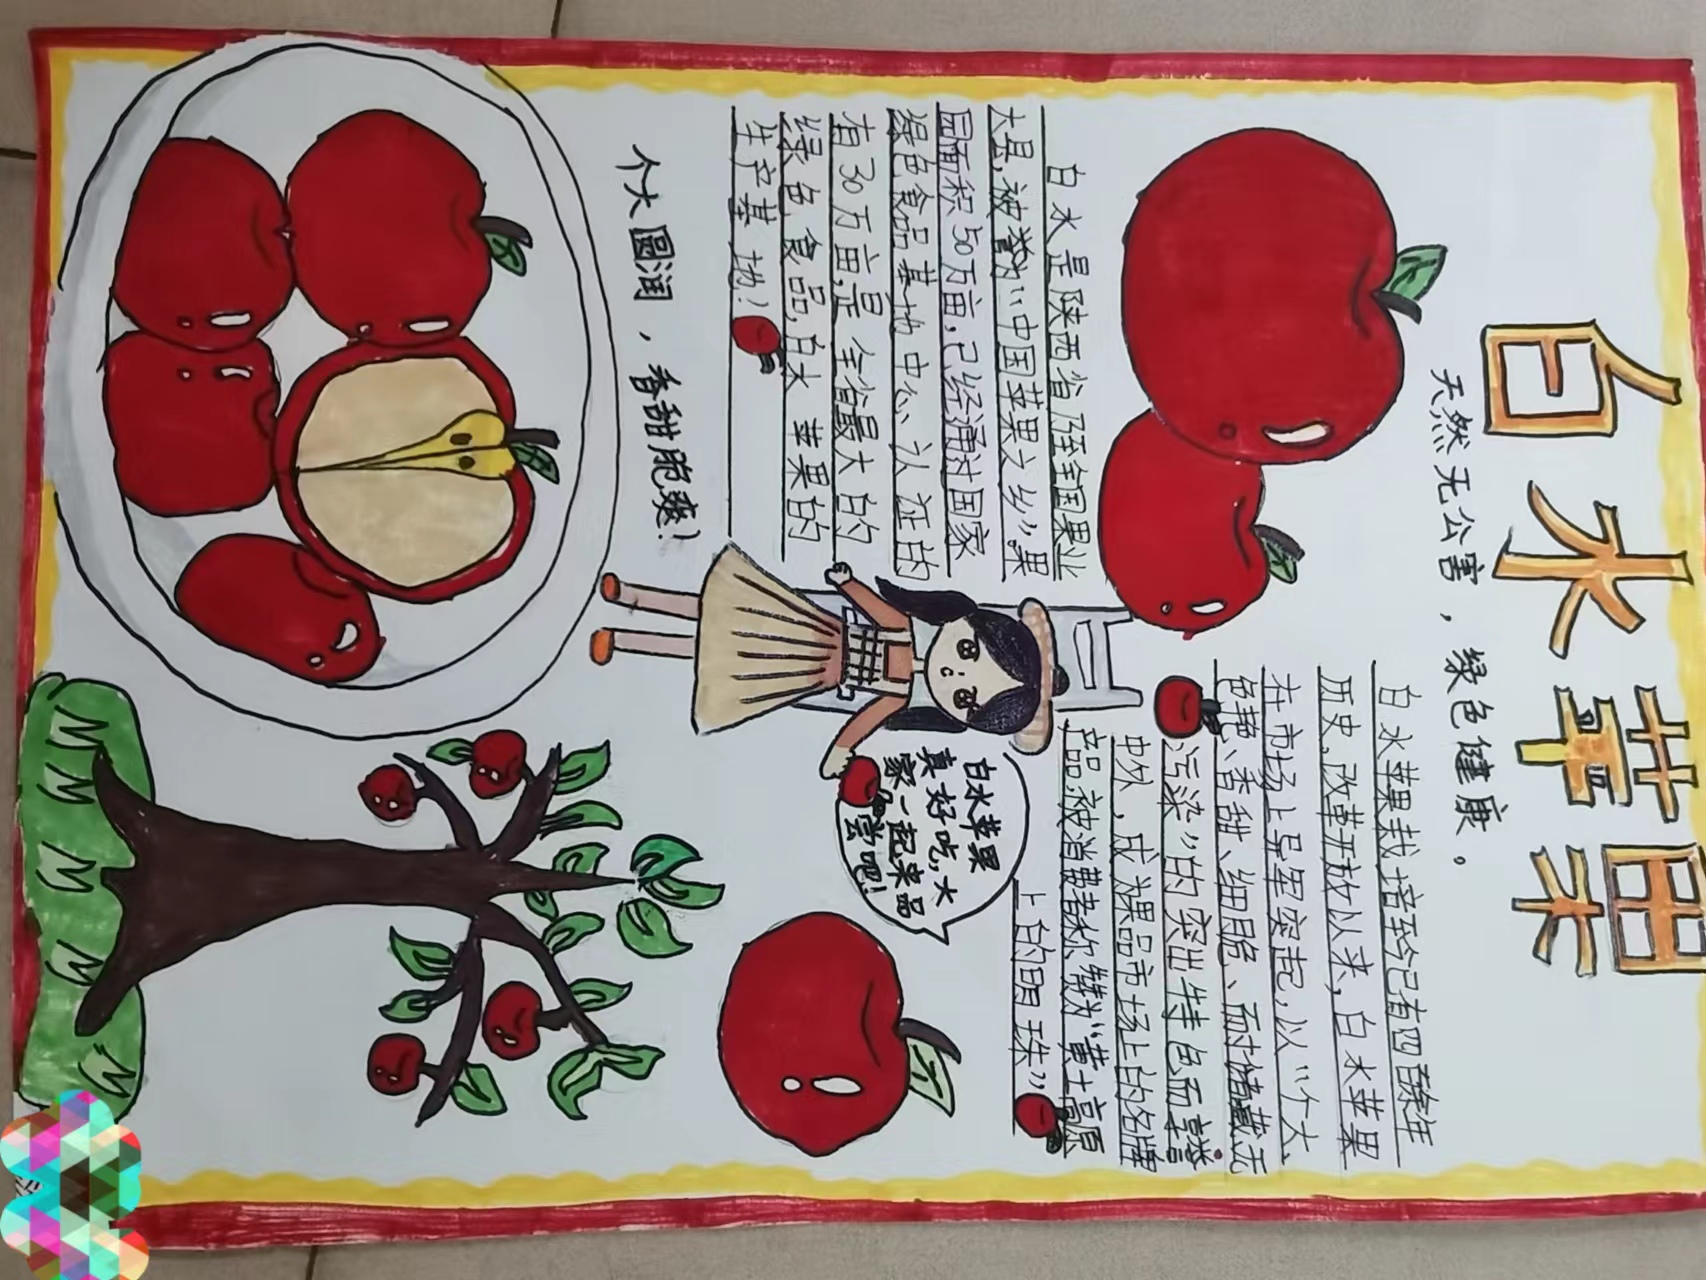 白水苹果
天然无公害，绿色健康。
白水是陕西省全国果业
大县,被誉为“中国苹果之乡”果
园面积50万亩,已经通过国家
绿色食品基地中心认证的
有30万亩,是全省最大的
绿色食品,白水苹果的
生产基地！
白水苹果栽培至今已有四百余年
历史,改革开放以来,白水苹果
在市场上异军突起,以“个大、
色艳、香甜、细脆、耐储藏无
污染”的突出特色而享誉
中外，成为果品市场上的名牌
产品,被消费者称赞为“黄土高原
上的明珠”
白水苹果
真好吃,大
家一起来品
尝吧！
个大圆润，香甜脆爽！